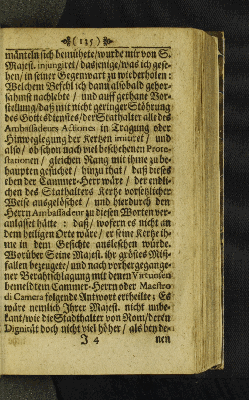 (135)
mänteln sich bemühete / wurde mir von S.
Majest. injungiret / dasjenige / was ich gese-
hen / in seiner Gegenwart zu wiederholen :
Welchem Befehl ich dann alsobald gehor-
samst nachlebte / und auff gethane Vor-
stellung / daß mit nicht geringer Störhrung
des Gottesdienstes / der Stathalter alle des
Ambassadeurs Actiones in Tragung oder
Hinweglegung der Kertzen imitiret / und
also / ob schon nach viel beschehenen Prote-
stationen / gleichen Rang mit ihme zu be-
haupten gesuchet / hinzu that / daß dieses
eben der Cammer-Herr wäre / der endli-
chen des Stathalters Kertze vorsetzlicher
Weise ausgelöschet / und hierdurch den
Herrn Ambassadeur zu diesen Worten ver-
anlasset hätte : daß / wofern es nicht an
dem heiligen Orte wäre / er seine Kertze ih-
me in dem Gesichte ausleschen würde.
Worüber Seine Majest. ihr größtes Miß-
fallen bezeugete / und nach vorhergegange-
ner Berathschlagung mit denen
bemeldtem Cammer-Herrn oder Maestro
di Camera folgende Antwort ertheilte ; Es
wäre nemlich Ihrer Majest. nicht unbe-
kant / wie die Stadthalter von Rom / deren
Dignität doch noch viel höher / als beyde-
J 4 nen